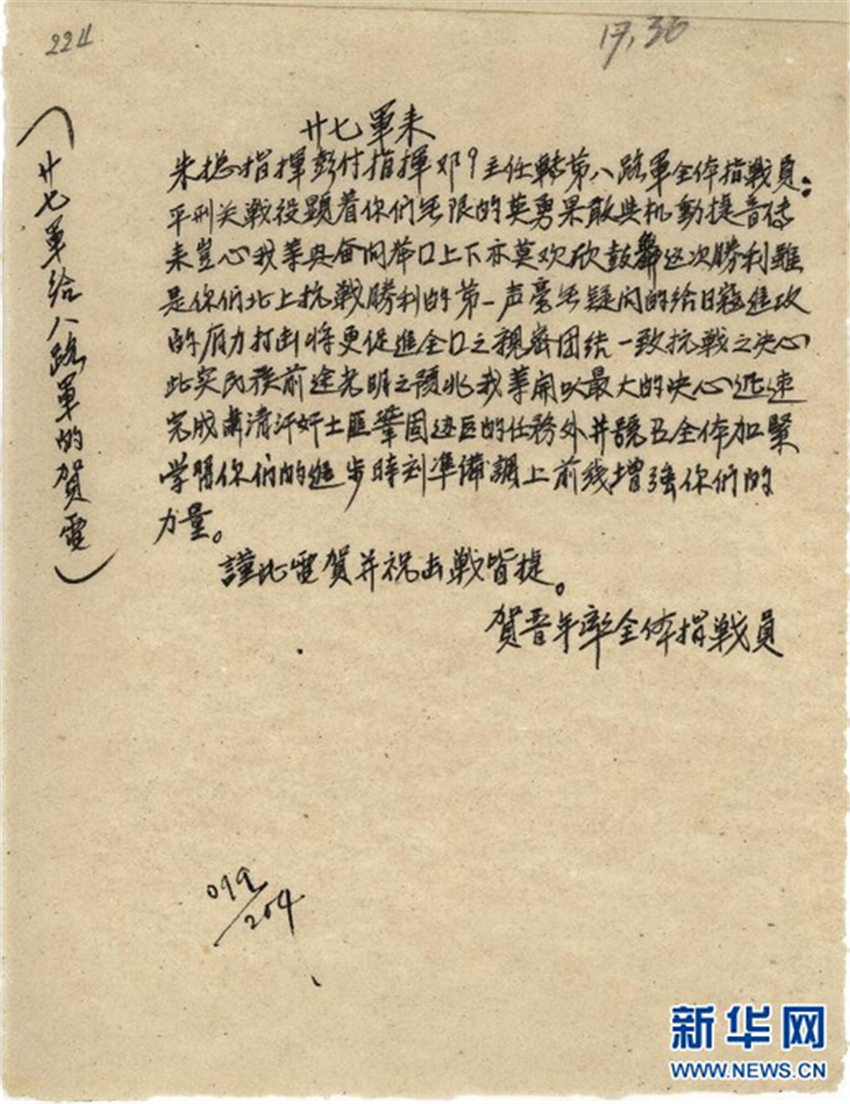 224
17,36
（廿七軍给八路軍的贺電）
廿七軍来
朱总指揮彭付指揮邓 主任轉第八路軍全体指戰員：
平刑关戰役顕着你們无限的英勇果敢与机動提音传
来岂心我等兴奋同举口上下亦莫欢欣鼓舞这次勝利雖
是你們北上抗戰勝利的第一声毫无疑问的给日寇進攻
的有力打击将更促進全口之親密团结一致抗戰之决心
此实民族前途光明之预兆我等開以最大的决心迅速
完成肃清汗奸土匪鞏固边区的任務外并 全体加緊
学習你們的進步時刻準備調上前线增强你們的
力量。
謹此電贺并祝出戰皆捷。
贺晋年率全体指戰員
099/204
新华网
WWW.NEWS.CN